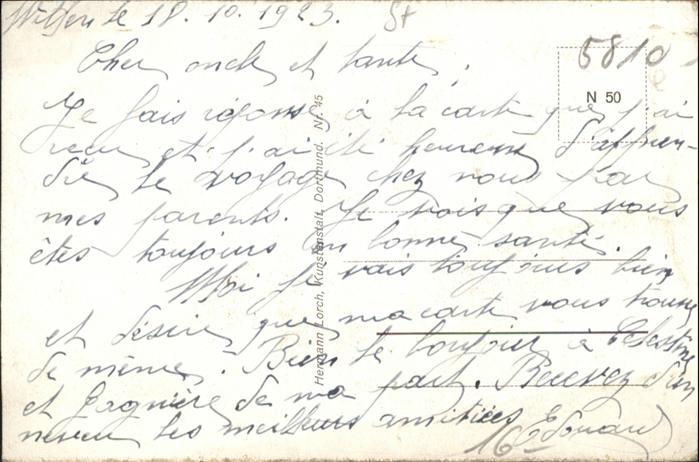 Witten le 18.10.1923.
St
5810
N 50
Cher oncle et tante,
Je fais réponse à la carte que j'ai
reçu et j'ai été heureux d'appren-
dre le voyage chez nous par
mes parents. Je vois que vous
êtes toujours en bonne santé.
Moi je vais toujours bien
et désire que ma carte vous trouve
de même. Bien le bonjour à Célestine
et de ma part. Recevez d'un
neveu les meilleurs amitiés
Edouard
Hermann Lorch, Kunstanstalt, Dortmund. Nr. 45